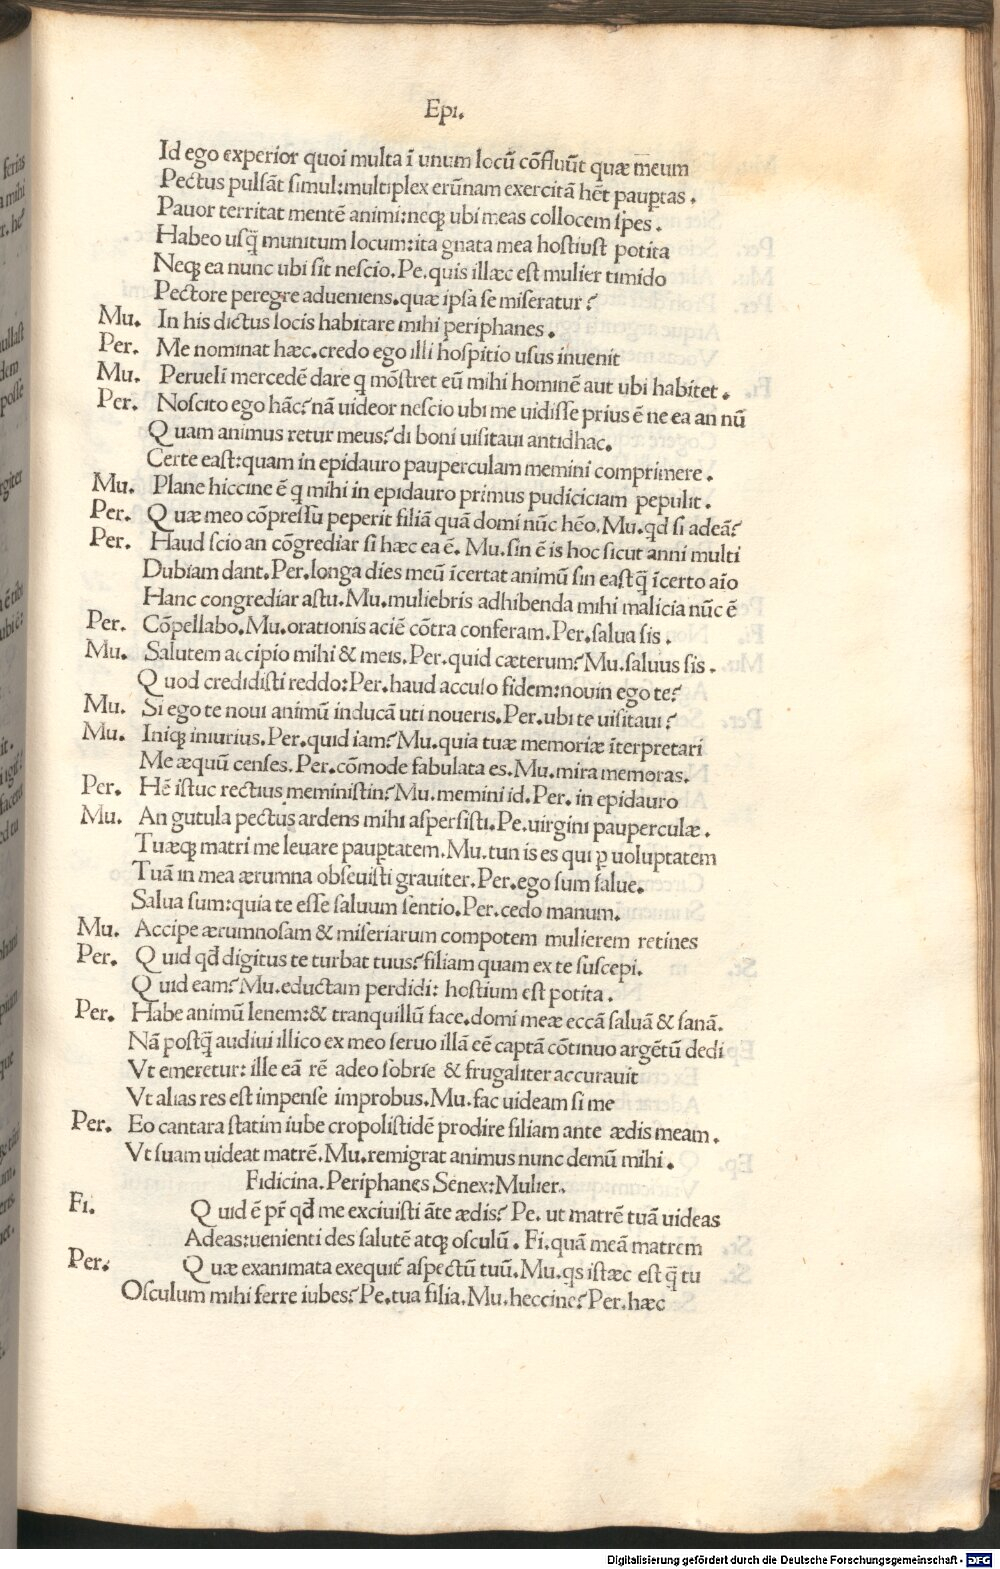 Epi.
Id ego experior quoi multa ī unum locū cōfluūt quæ meum
Pectus pulsāt simul:multiplex erūnam exercitā hēt pauꝑtas.
Pauor territat mentē animi:neqꝫ ubi meas collocem spes.
Habeo usq̄ munitum locum:ita gnata mea hostiust potita
Neqꝫ ea nunc ubi sit nescio.Pe.quis illæc est mulier timido
Pectore peregre adueniens.quæ ipsa se miseratur?
Mu. In his dictus locis habitare mihi periphanes.
Per. Me nominat hæc.credo ego illi hospitio usus inuenit
Mu. Peruelī mercedē dare q mōstret eū mihi hominē aut ubi habitet.
Per. Noscito ego hāc?nā uideor nescio ubi me uidisse prius ē ne ea an nū
Quam animus retur meus?di boni uisitaui antidhac.
Certe east:quam in epidauro pauperculam memini comprimere.
Mu. Plane hiccine ē q mihi in epidauro primus pudiciciam pepulit.
Per. Quæ meo cōpressu peperit filiā quā domi nūc hēo.Mu.qd si adeā?
Per. Haud scio an cōgrediar si hæc ea ē. Mu.sin ē is hoc sicut anni multi
Dubiam dant.Per.longa dies meū īcertat animū sin east q̄ īcerto aīo
Hanc congrediar astu.Mu.muliebris adhibenda mihi malicia nūc ē
Per. Cōpellabo.Mu.orationis aciē cōtra conferam.Per.salua sis.
Mu. Salutem accipio mihi & meis.Per.quid cæterum?Mu.saluus sis.
Quod credidisti reddo:Per.haud acculo fidem:nouin ego te?
Mu. Si ego te noui animū inducā uti noueris.Per.ubi te uisitaui?
Mu. Iniqꝫ iniurius.Per.quid iam?Mu.quia tuæ memoriæ īterpretari
Me æquū censes.Per.cōmode fabulata es.Mu.mira memoras.
Per. Hē istuc rectius meministin?Mu.memini id.Per. in epidauro
Mu. An gutula pectus ardens mihi aspersisti.Pe.uirgini pauperculæ.
Tuæqꝫ matri me leuare pauꝑtatem.Mu.tun is es qui ꝑ uoluptatem
Tuā in mea ærumna obseuisti grauiter.Per.ego sum salue.
Salua sum:quia te esse saluum sentio.Per.cedo manum.
Mu. Accipe ærumnosam & miseriarum compotem mulierem retines
Per. Quid qd̄ digitus te turbat tuus?filiam quam ex te suscepi.
Quid eam?Mu.eductam perdidi: hostium est potita.
Per. Habe animū lenem:& tranquillū face.domi meæ eccā saluā & sanā.
Nā postq̄ audiui illico ex meo seruo illā eē captā cōtinuo argētū dedi
Vt emeretur: ille eā rē adeo sobrie & frugaliter accurauit
Vt alias res est impense improbus.Mu.fac uideam si me
Per. Eo cantara statim iube cropolistidē prodire filiam ante ædis meam.
Vt suam uideat matrē.Mu.remigrat animus nunc demū mihi.
Fidicina.Periphanes Senex:Mulier.
Fi. Quid ē pr̄ qd̄ me exciuisti āte ædis? Pe. ut matrē tuā uideas
Adeas:uenienti des salutē atqꝫ osculū. Fi.quā meā matrem
Per. Quæ exanimata exequit̄ aspectū tuū.Mu.qs istæc est q̄ tu
Osculum mihi ferre iubes?Pe.tua filia.Mu.heccine?Per.hæc
Digitalisierung gefördert durch die Deutsche Forschungsgemeinschaft - DFG